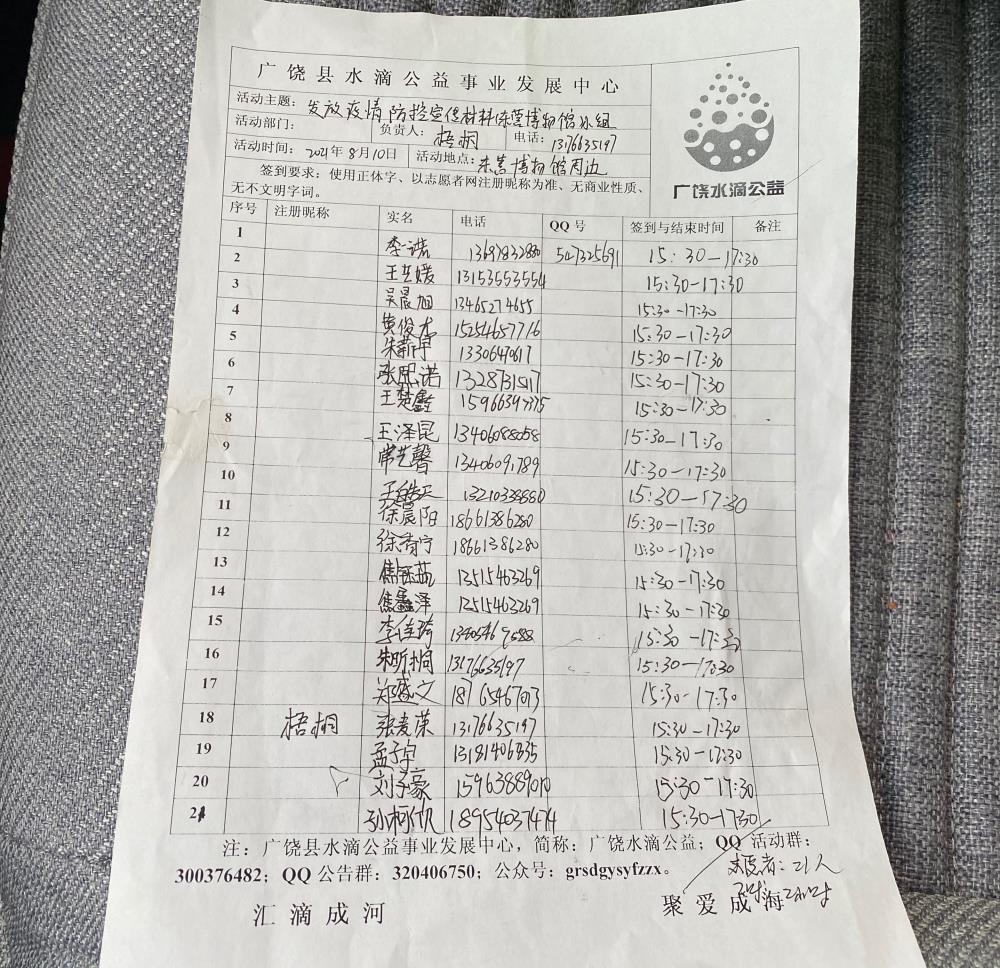 广饶县水滴公益事业发展中心
活动主题：发放疫情防控宣传材料 博物馆小组
活动部门： 负责人：梧桐 电话：13176635197
活动时间：2021年8月10日 活动地点：东营博物馆周边
签到要求：使用正体字、以志愿者网注册昵称为准、无商业性质、
无不文明字词。
广饶水滴公益
序号 注册昵称 实名 电话 QQ号 签到与结束时间 备注
1
2 李诺 547325691 15:30-17:30
3 13153553554 15:30-17:30
4 吴晨旭 13465274655 15:30-17:30
5 黄俊杰 15254657716 15:30-17:30
6 朱新宇 15:30-17:30
7 张思诺 15:30-17:30
8 王楚鑫 15:30-17:30
9 王泽昆 13406088058 15:30-17:30
10 常艺馨 13406091789 15:30-17:30
11 15:30-17:30
12 徐晨阳 18661386280 15:30-17:30
13 18661386280 15:30-17:30
14 13515463269 15:30-17:30
15 焦鑫泽 13515463269 15:30-17:30
16 李佳琦 15:30-17:30
17 朱昕桐 13176635197 15:30-17:30
郑盛文 18765467013 15:30-17:30
18 梧桐 张麦荣 13176635197 15:30-17:30
19 孟子卓 15:30-17:30
20 刘子豪 15:30-17:30
21 孙柯欣 18954037474 15:30-17:30
注：广饶县水滴公益事业发展中心，简称：广饶水滴公益；QQ活动群：
300376482；QQ公告群：320406750；公众号：grsdgysyfzzx。
志愿者：21人
汇滴成河 聚爱成海